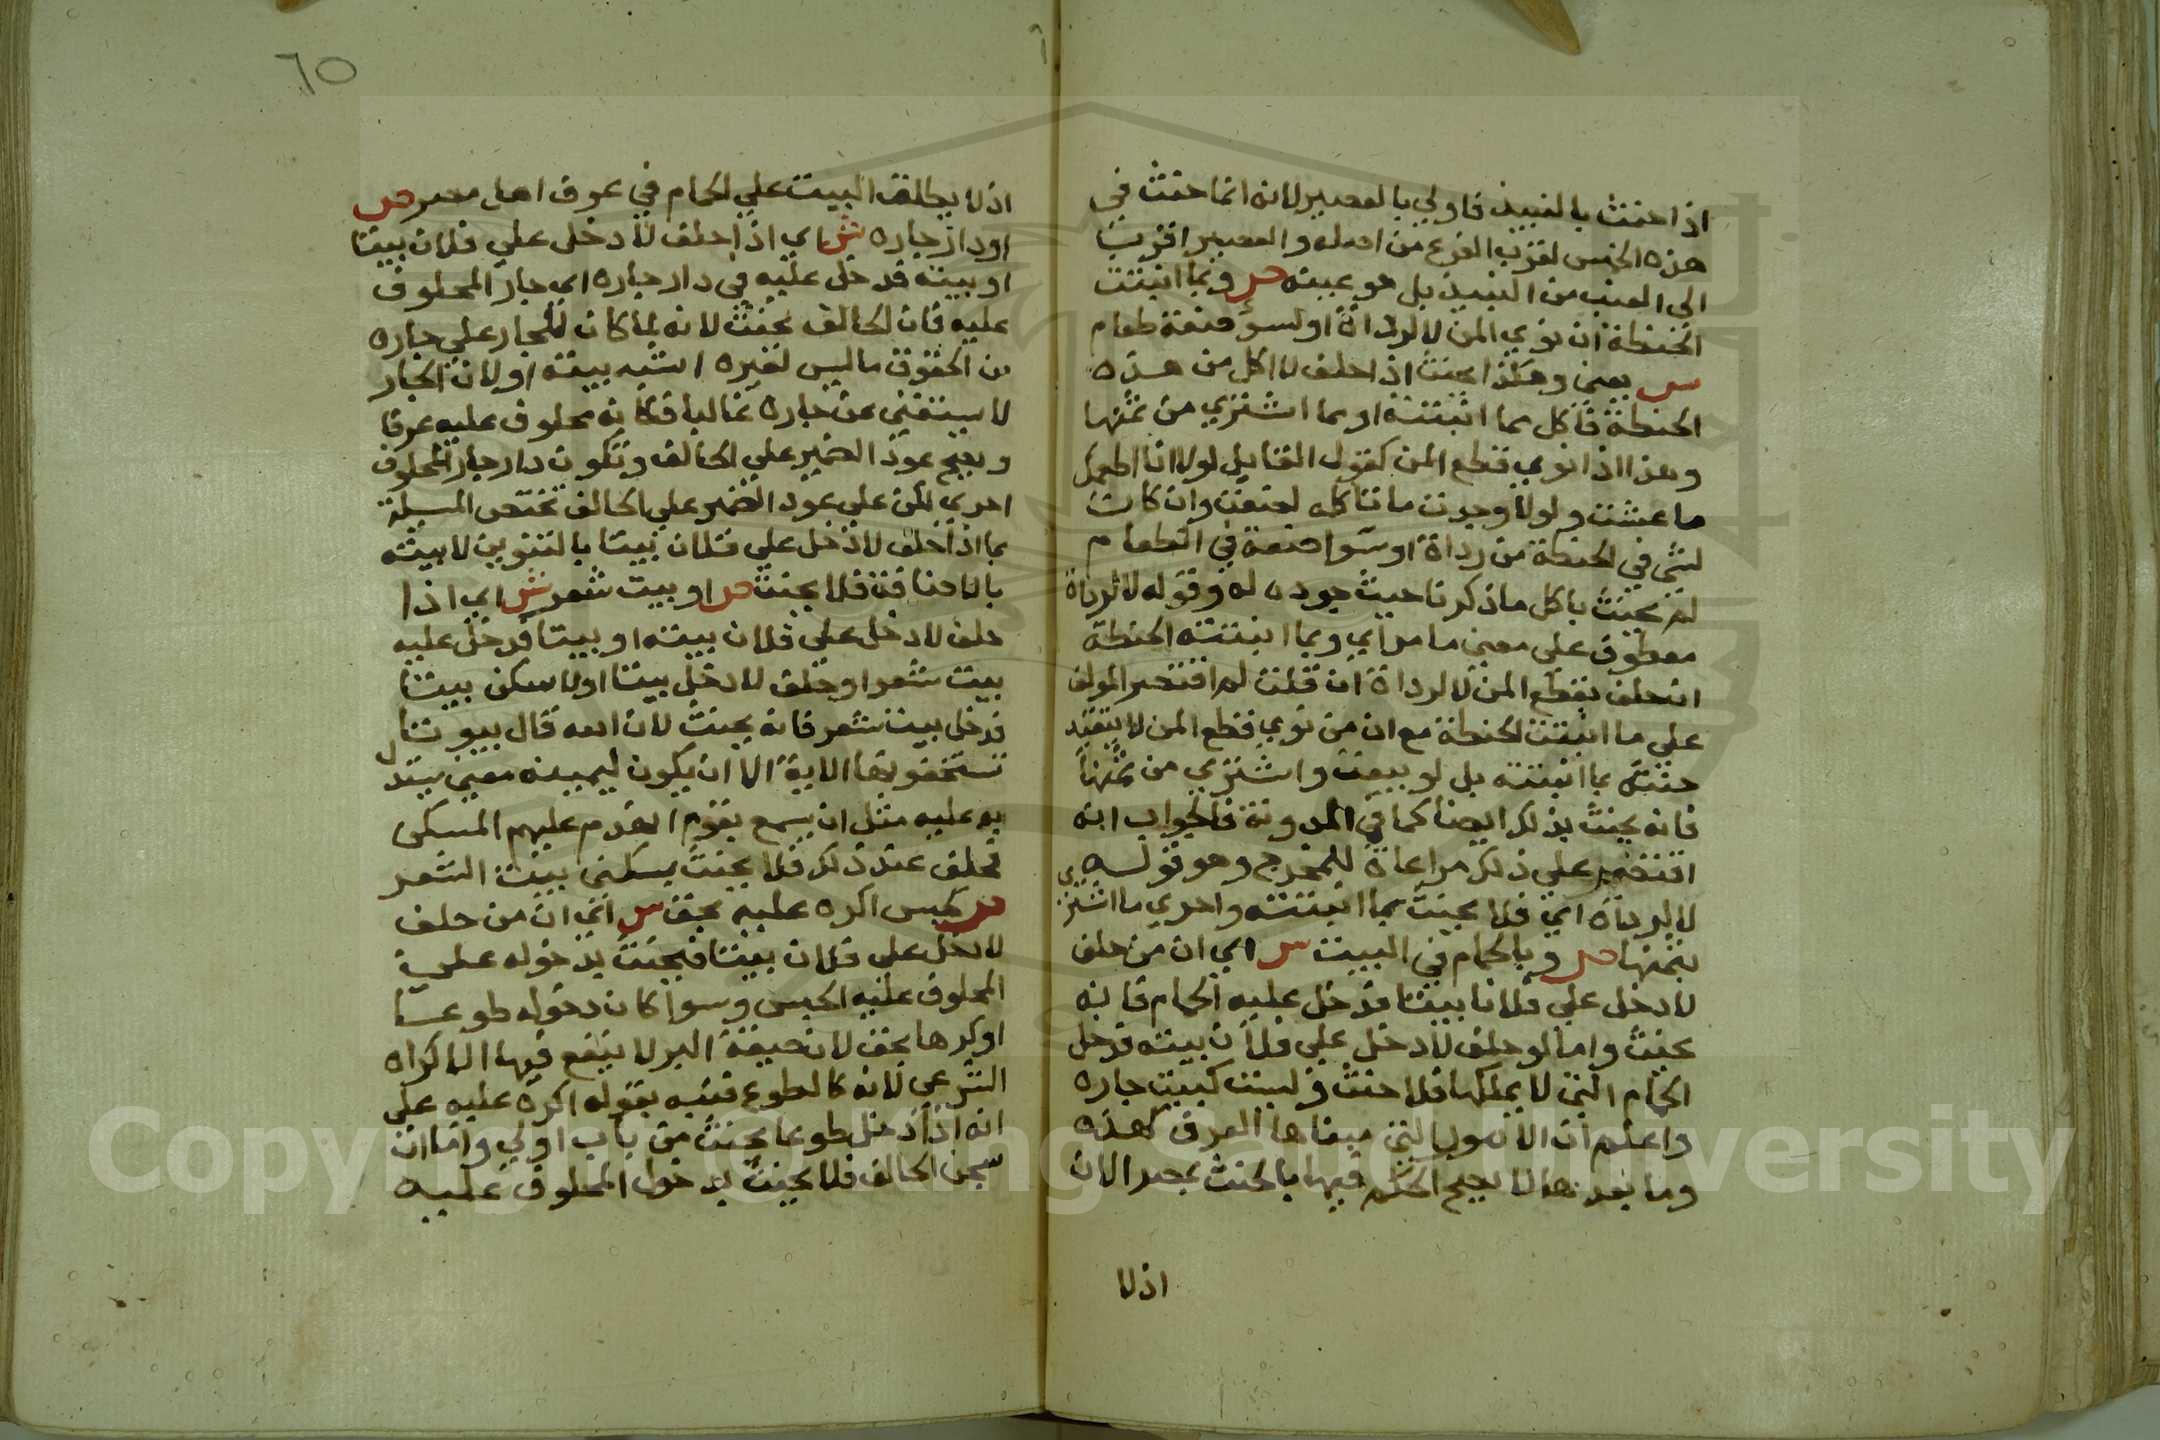 اذا حنث بالنبيذ فاولي بالعصير لانه انما حنث في
هذه الخمس لقرب الفرع من اصله والعصير اقرب
الى العنب من النبيذ بل هو عينه ص وبما انبتت
الحنطة ان نوي المن لا لرداة او لسوء صنعة طعام
س يعني وهكذا يحنث اذا حلف لا اكل من هذه
الحنطة فاكل مما انبتته او مما اشتري من ثمنها
وهذا اذا نوي قطع المن كقول القايل لولا انا اطعمك
ما عشت ولولا وجدت ما تاكله لضعت وان كانت
لشي في الحنطة من رداة او سوا صنعة في الطعام
لم يحنث باكل ما ذكرنا حيث جوده له وقوله لا لرداة
معطوف على معنى ما مر اي وبما انبتته الحنطة
ان حلف لقطع المن لا لرداة ان قلت لم اقتصر المولف
على ما انبتت الحنطة مع ان من نوي قطع المن لا يتقيد
حنثه بما انبتته بل لو بيعت واشتري من ثمنها
فانه يحنث بذلك ايضا كما في المدونة فالجواب انه
اقتصر على ذلك مراعاة للمخرج وهو قوله
لا لرداة اي فلا يحنث بما انبتته واحري ما اشتري
بثمنها ص وبالحمام في البيت س اي ان من حلف
لا دخل علي فلانا بيتا فدخل عليه الحمام فانه
يحنث واما لو حلف لا دخل علي فلان بيته فدخل
الحمام التي لا يملكها فلا حنث وليست كبيت جاره
واعلم ان الامور التي مبناها العرف كهذه
وما بعدها لا يصح الحكم فيها بالحنث بمصر الان
اذلا
٦٥
اذ لا يطلق البيت علي الحمام في عرف اهل مصر ص
او دار جاره ش اي اذا حلف لا دخل علي فلان بيتا
او بيته فدخل عليه في دار جاره اي جار المحلوف
عليه فان الحالف يحنث لانه لما كان للجار علي جاره
من الحقوق ما ليس لغيره اشبه بيته او لان الجار
لا يستغني عن جاره غالبا فكانه محلوف عليه عرفا
ويصح عود الضمير علي الحالف وتكون دار جار المحلوف
احري لكن علي عود الضمير علي الحالف تختص المسيلة
بما اذا حلف لا دخل علي فلان بيتا بالتنوين لا بيته
بالاضافة فلا يحنث ص او بيت شعر ش اي اذا
حلف لا دخل علي فلان بيته او بيتا فدخل عليه
بيت شعر او حلف لا دخل بيتا او لا سكن بيتا
فدخل بيت شعر فانه يحنث لان الله قال بيوتا
تستخفونها الاية الا ان يكون ليمينه معنى يستدل
به عليه مثل ان يسمع بقوم انهدم عليهم المسكن
فحلف عند ذلك فلا يحنث بسكنى بيت الشعر
ص كحبس اكره عليه بحق س اي ان من حلف
لا دخل علي فلان بيتا فيحنث بدخوله علي
المحلوف عليه الحبس وسوا كان دخوله طوعا
او كرها بحق لان صيغة البر لا ينفع فيها الاكراه
الشرعي لانه كالطوع فنبه بقوله اكره عليه علي
انه اذا دخل طوعا يحنث من باب اولي واما ان
سجن الحالف فلا يحنث بدخول المحلوف عليه
Copyright © King Saud University